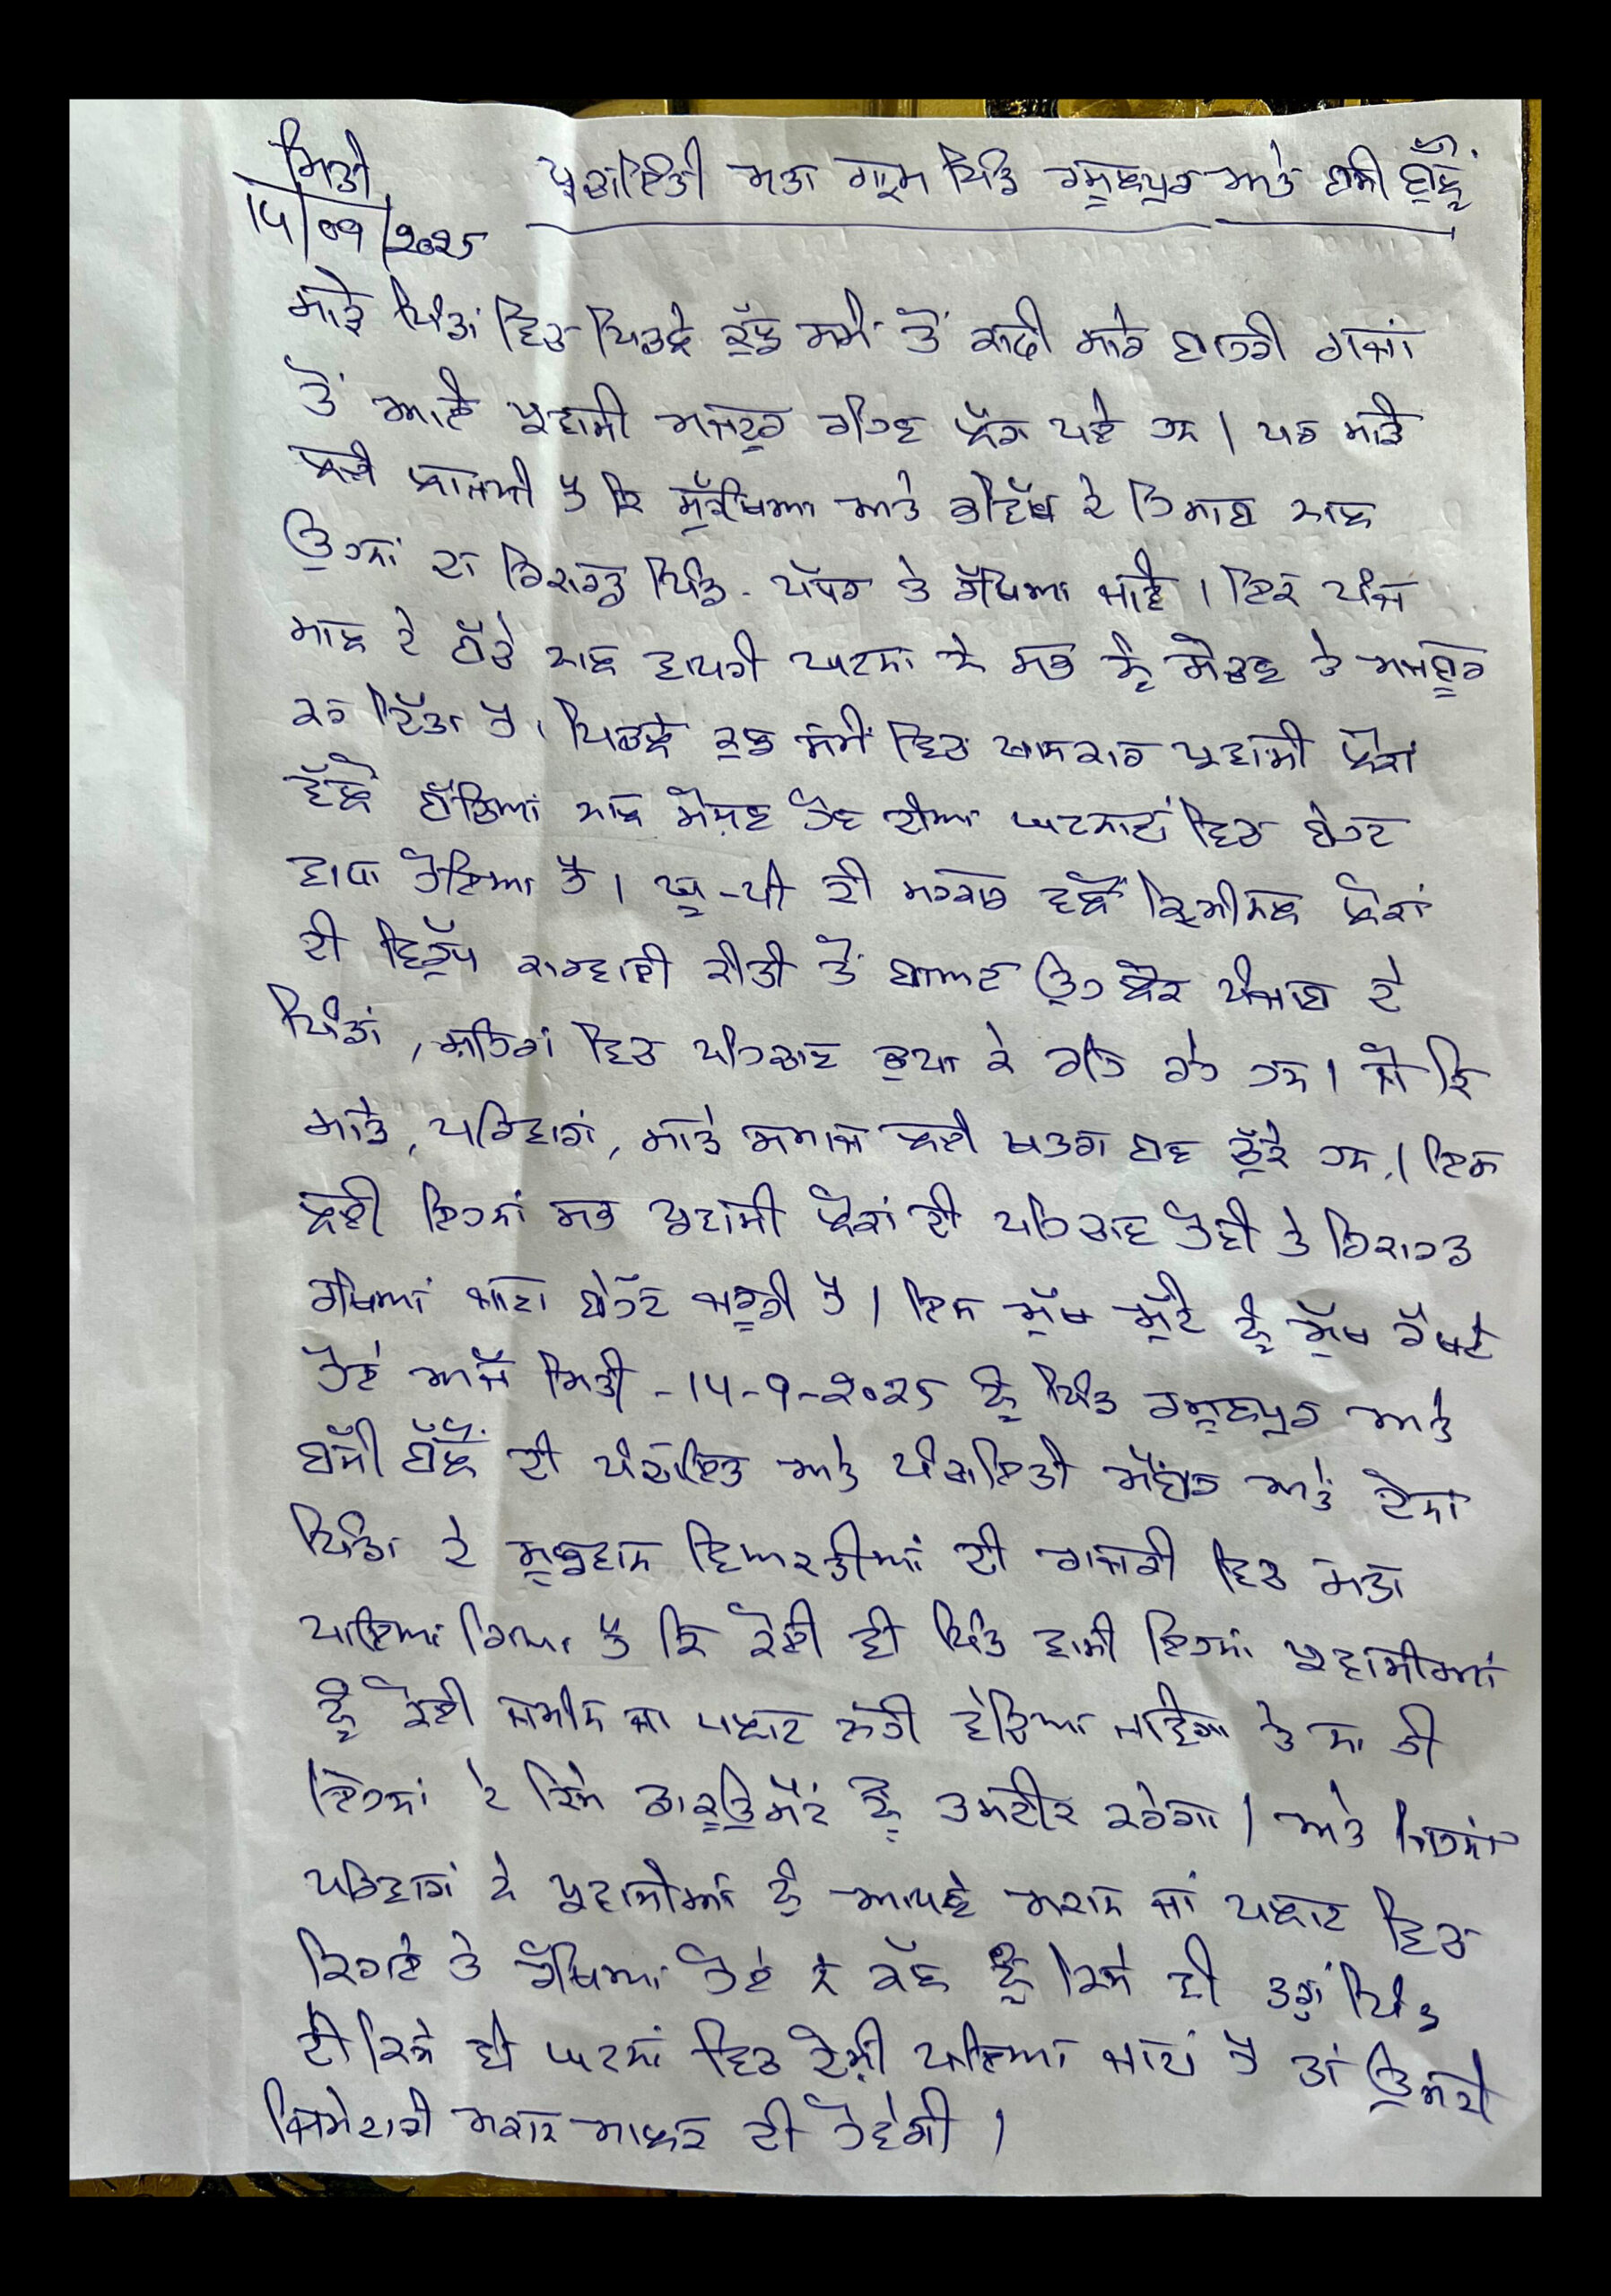 ਮਿਤੀ
14/09/2025
ਪੰਚਾਇਤੀ ਮਤਾ ਗ੍ਰਾਮ ਪਿੰਡ ਰਸੂਲਪੁਰ ਅਤੇ ਬਸੀ ਬੱਲੋਂ
ਸਾਡੇ ਪਿੰਡਾਂ ਵਿਚ ਪਿਛਲੇ ਕੁੱਝ ਸਮੇਂ ਤੋਂ ਕਾਫੀ ਸਾਰੇ ਬਾਹਰੀ ਰਾਜਾਂ
ਤੋਂ ਆਏ ਪ੍ਰਵਾਸੀ ਮਜਦੂਰ ਰਹਿਣ ਲੱਗ ਪਏ ਹਨ। ਪਰ ਸਾਡੇ
ਲਈ ਲਾਜਮੀ ਹੈ ਕਿ ਸੁਰੱਖਿਆ ਅਤੇ ਭਵਿੱਖ ਦੇ ਹਿਸਾਬ ਨਾਲ
ਉਹਨਾਂ ਦਾ ਰਿਕਾਰਡ ਪਿੰਡ ਪੱਧਰ ਤੇ ਰੱਖਿਆ ਜਾਏ। ਇਕ ਪੰਜ
ਸਾਲ ਦੇ ਬੱਚੇ ਨਾਲ ਵਾਪਰੀ ਘਟਨਾ ਨੇ ਸਭ ਨੂੰ ਸੋਚਣ ਤੇ ਮਜਬੂਰ
ਕਰ ਦਿੱਤਾ ਹੈ। ਪਿਛਲੇ ਕੁਝ ਸਮੇਂ ਵਿਚ ਖਾਸਕਾਰ ਪ੍ਰਵਾਸੀ ਲੋਕਾਂ
ਵੱਲੋ ਬੱਚਿਆਂ ਨਾਲ ਸੋਸ਼ਣ ਹੋਣ ਦੀਆ ਘਟਨਾਵਾਂ ਵਿਚ ਬੇਹਦ
ਵਾਧਾ ਹੋਇਆ ਹੈ। ਯੂ-ਪੀ ਦੀ ਸਰਕਾਰ ਵਲੋਂ ਕ੍ਰਿਮੀਨਲ ਲੋਕਾਂ
ਦੀ ਵਿਰੁੱਧ ਕਾਰਵਾਈ ਕੀਤੀ ਤੋਂ ਬਾਅਦ ਉਹ ਲੋਕ ਪੰਜਾਬ ਦੇ
ਪਿੰਡਾਂ, ਸ਼ਹਿਰਾਂ ਵਿਚ ਪਹਿਚਾਣ ਛੁਪਾ ਕੇ ਰਹਿ ਰਹੇ ਹਨ। ਜੋ ਕਿ
ਸਾਡੇ, ਪਰਿਵਾਰਾਂ, ਸਾਡੇ ਸਮਾਜ ਲਈ ਖਤਰਾ ਬਣ ਚੁੱਕੇ ਹਨ। ਇਸ
ਲਈ ਇਹਨਾਂ ਸਭ ਪ੍ਰਵਾਸੀ ਲੋਕਾਂ ਦੀ ਪਹਿਚਾਣ ਹੋਣੀ ਤੇ ਰਿਕਾਰਡ
ਰੱਖਿਆਂ ਜਾਣਾ ਬੇਹੱਦ ਜਰੂਰੀ ਹੈ। ਇਸ ਮੁੱਖ ਮੁੱਦੇ ਨੂੰ ਮੁੱਖ ਰੱਖਦੇ
ਹੋਏ ਅੱਜ ਮਿਤੀ -14-9-2025 ਨੂੰ ਪਿੰਡ ਰਸੂਲਪੁਰ ਅਤੇ
ਬਸੀ ਬੱਲੋਂ ਦੀ ਪੰਚਾਇਤ ਅਤੇ ਪੰਚਾਇਤੀ ਮੈਂਬਰ ਅਤੇ ਦੋਨਾਂ
ਪਿੰਡਾ ਦੇ ਸੂਝਵਾਨ ਵਿਅਕਤੀਆਂ ਦੀ ਹਾਜਰੀ ਵਿਚ ਮਤਾ
ਪਾਇਆਂ ਗਿਆ ਹੈ ਕਿ ਕੋਈ ਵੀ ਪਿੰਡ ਵਾਸੀ ਇਹਨਾਂ ਪ੍ਰਵਾਸੀਆਂ
ਨੂੰ ਕੋਈ ਜਮੀਨ ਜਾ ਪਲਾਟ ਨਹੀ ਵੇਚਿਆ ਜਾਵੇਗਾ ਤੇ ਨਾ ਹੀ
ਇਹਨਾਂ ਦੇ ਕਿਸੇ ਡਾਕੂਉਮੈਂਟ ਨੂੰ ਤਸਦੀਕ ਕਰੇਗਾ। ਅਤੇ ਜਿਹਨਾਂ
ਪਰਿਵਾਰਾਂ ਨੇ ਪ੍ਰਵਾਸੀਆਂ ਨੂੰ ਆਪਣੇ ਮਕਾਨ ਜਾਂ ਪਲਾਟ ਵਿਚ
ਕਿਰਾਏ ਤੇ ਰੱਖਿਆਂ ਹੋਏ ਨੇ ਕੱਲ ਨੂੰ ਕਿਸੇ ਵੀ ਤਰ੍ਹਾਂ ਪਿੰਡ
ਦੀ ਕਿਸੇ ਵੀ ਘਟਨਾਂ ਵਿਚ ਦੋਸ਼ੀ ਪਾਇਆ ਜਾਂਦਾ ਹੈ ਤਾਂ ਉਸਦੀ
ਜਿਮੇਦਾਰੀ ਮਕਾਨ ਮਾਲਕ ਦੀ ਹੋਵੇਗੀ।